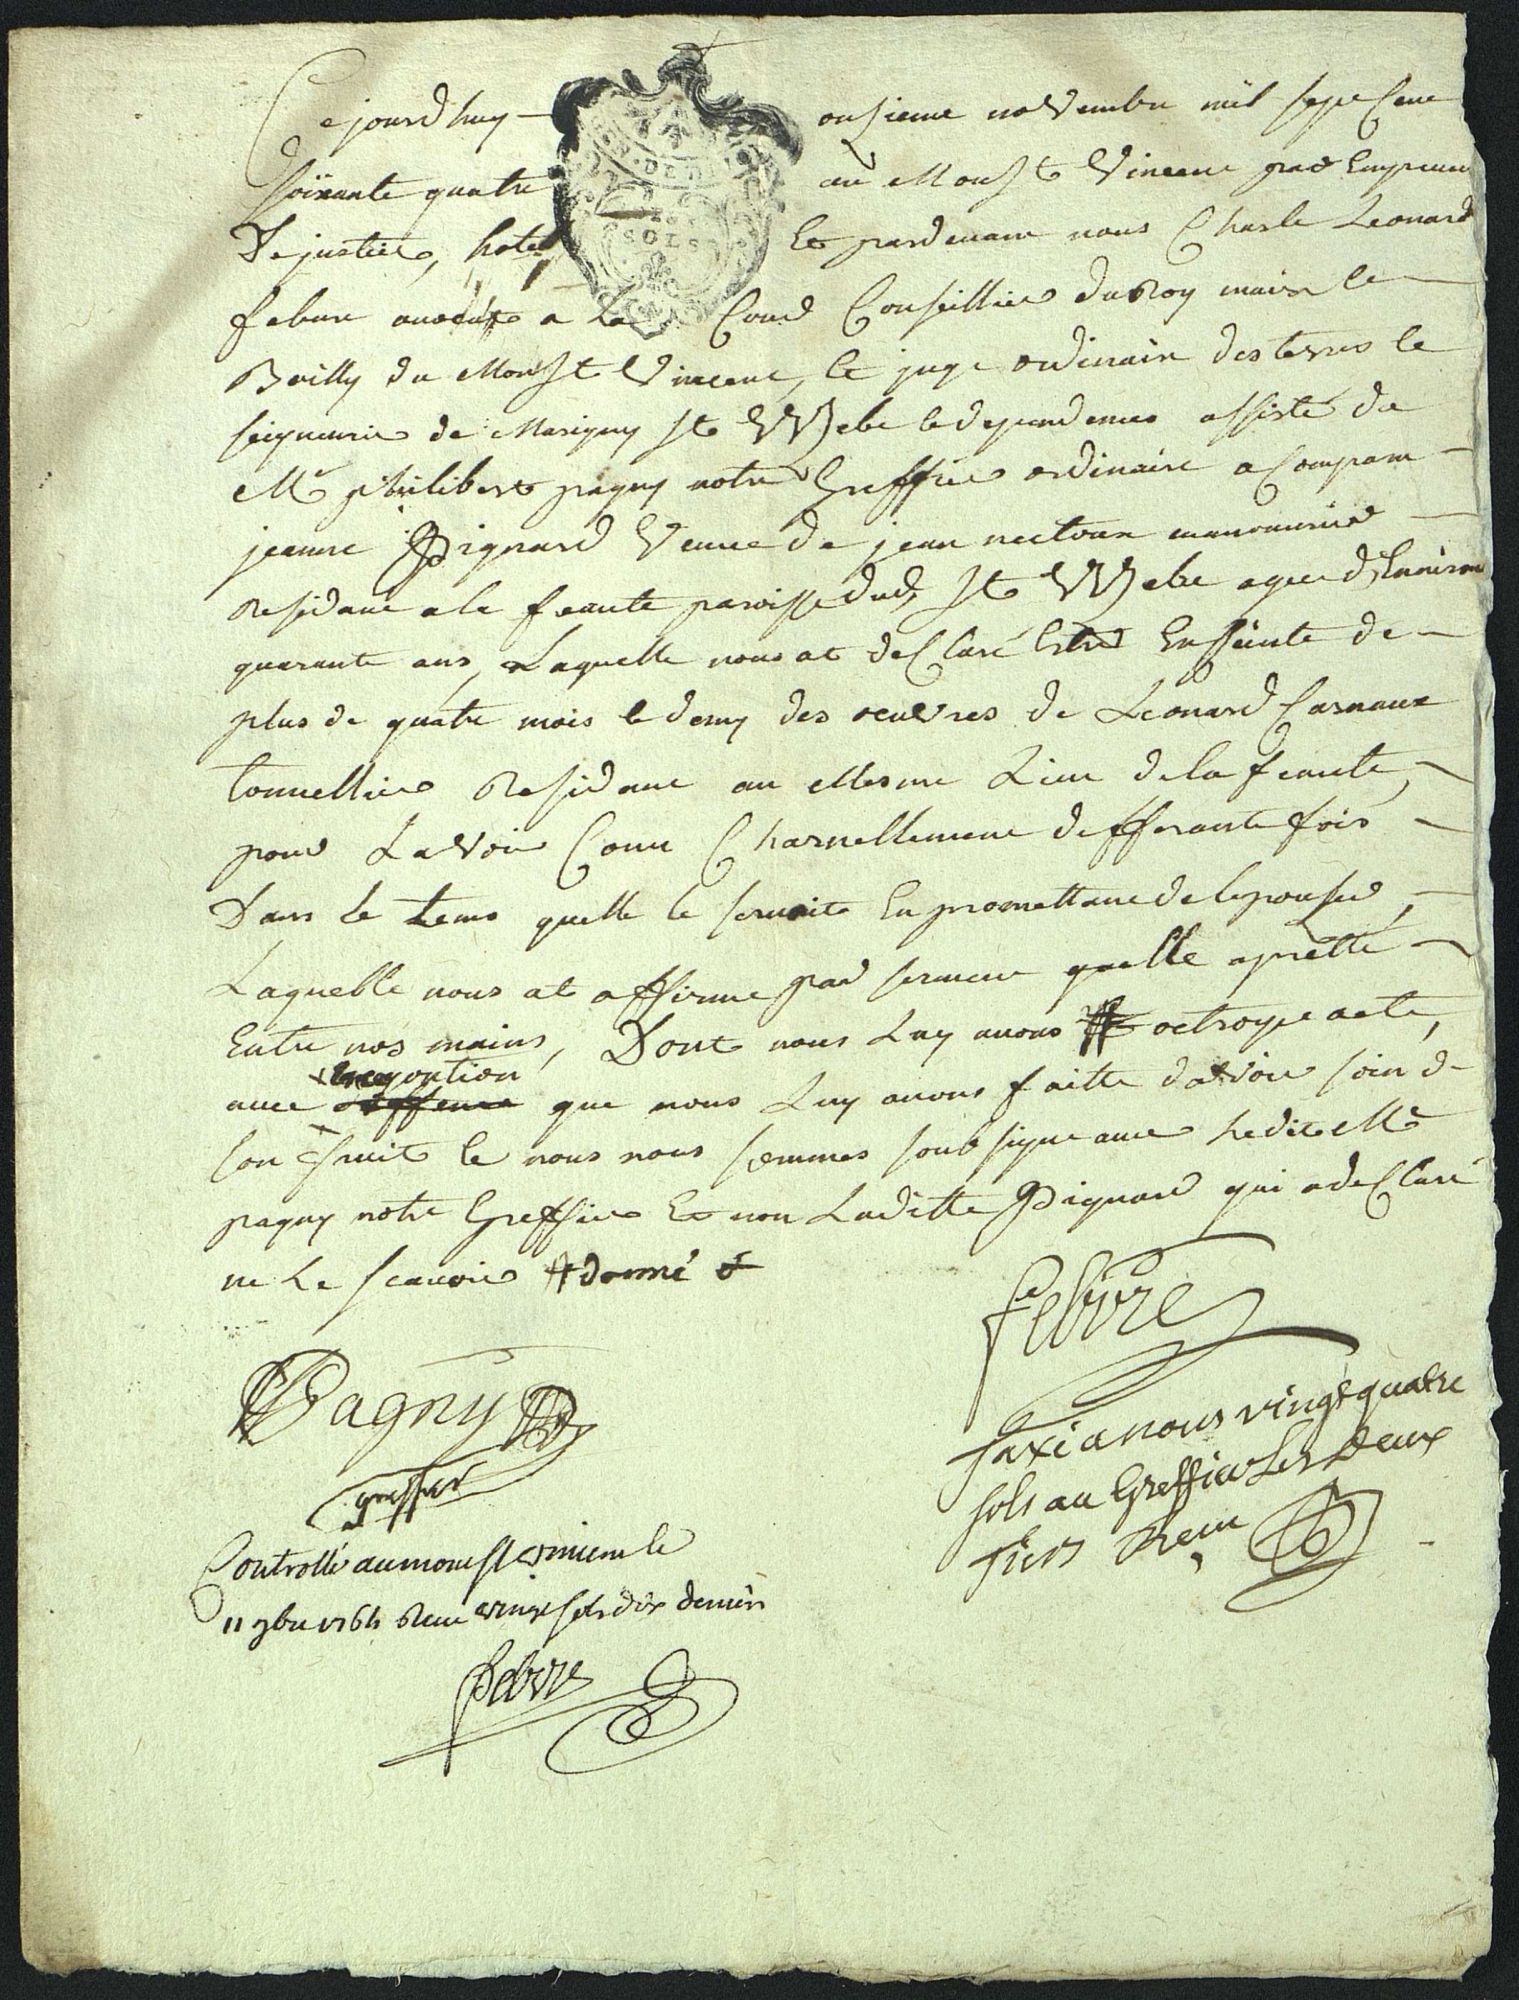 Cejourd huy onzieme novembre mil sept Cent
soixante quatre au Mont St Vincent par Emprunt
De justice, hotel Et pardevant nous Charle Leonard
febvre avocat a La Cour Conseillier du Roy maire le
Bailly du Mont St Vincent, le juge ordinaire des terres le
seigneurie de Marigny St VVebe le dependences assisté de
Me philibert pagny notre Greffier ordinaire a Comparu
jeanne Pignard Veuve de jean nectoux manouvrier
Residant a la feaute paroisse dud. St VVebe agee d'Environ
quarante ans, Laquelle nous at deClaré Estre Enseinte de
plus de quatre mois le demy des oeuvres de Léonard Carnaux
tonnellier Residant au Mesme Lieu de la feaute,
pour Lavoir Connu Charnellement defferante fois
Dans le tems quelle le servoit En promettant de lepouser,
Laquelle nous at affirmé par serment quelle a pretté
Entre nos mains, Dont nous Luy avons octroyé acte,
avec que nous Luy avons faitte davoir soin de
son fruit le nous nous sommes soub signe avec Ledit Me
pagny notre Greffier Et non Laditte Pignard qui a deClaré
ne Le scavoir donné
febvre
Pagny
greffier
Taxé a nous vingt quatre
sols au Greffier Les Deux
Tiers Receu
Controllé au mont st vincent le
11 9bre 1764 Receu vingt sols dix deniers
febvre
DE DIJ
SOLS